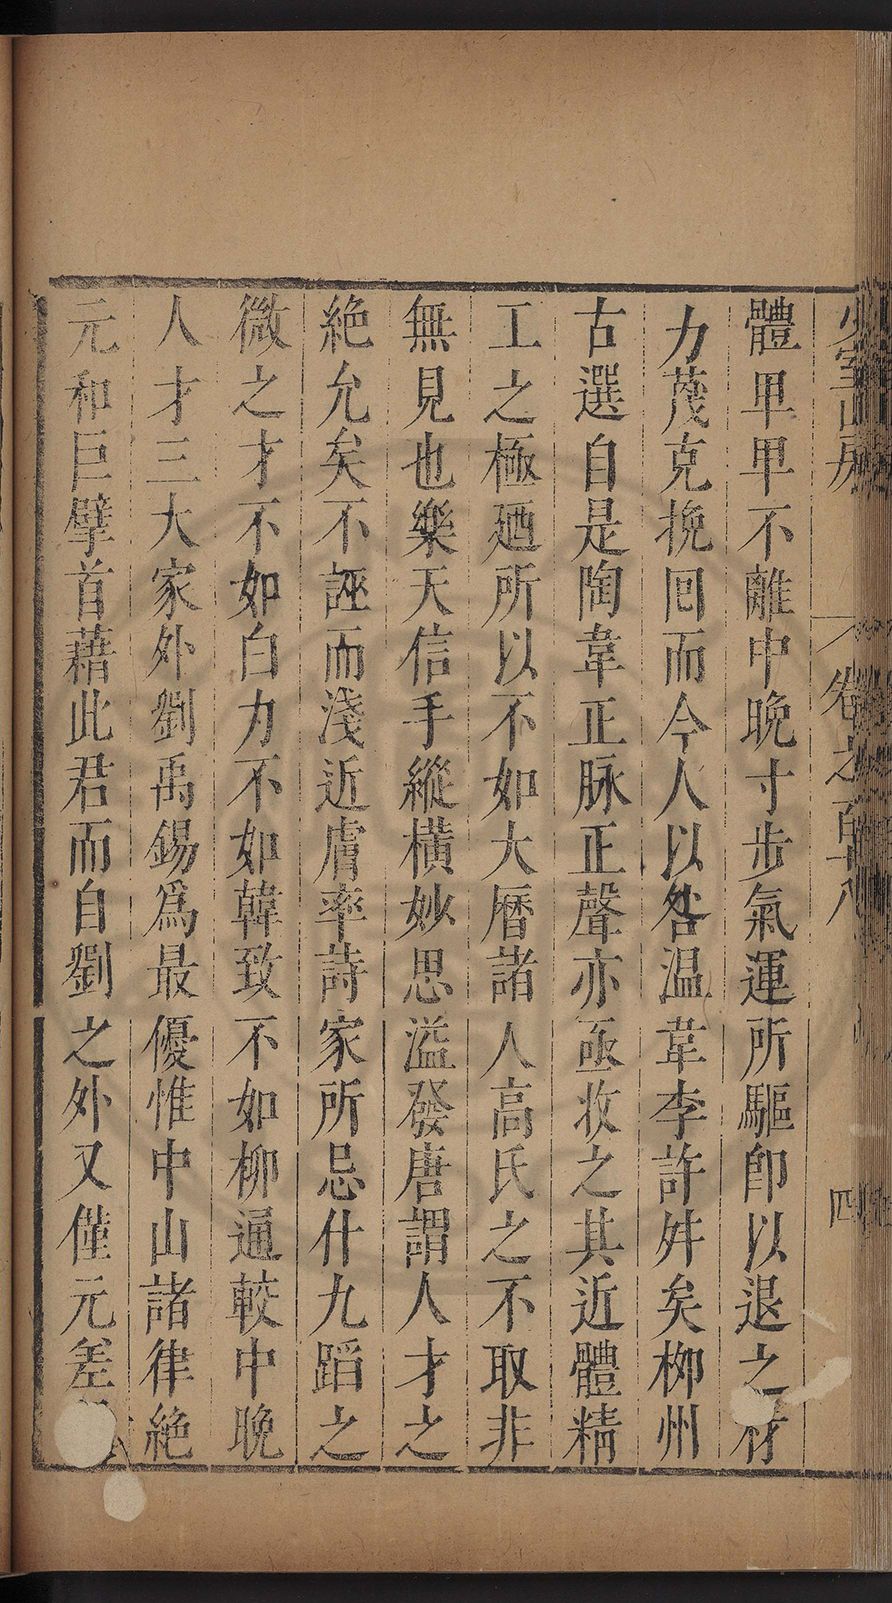 少室山房 卷之百十八 四
體卑卑不離中晚寸步氣運所驅卽以退之材
力茂克挽囘而今人以咎温韋李許舛矣桺州
古選自是陶韋正脉正聲亦亟收之其近體精
工之極廼所以不如大曆諸人高氏之不取非
無見也樂天信手縱橫妙思溢發唐謂人才之
絕允矣不誣而淺近膚率詩家所忌什九蹈之
微之才不如白力不如韓致不如柳逼較中晚
人才三大家外劉禹錫爲最優惟中山諸律絕
元和巨擘首藉此君而自劉之外又僅元差